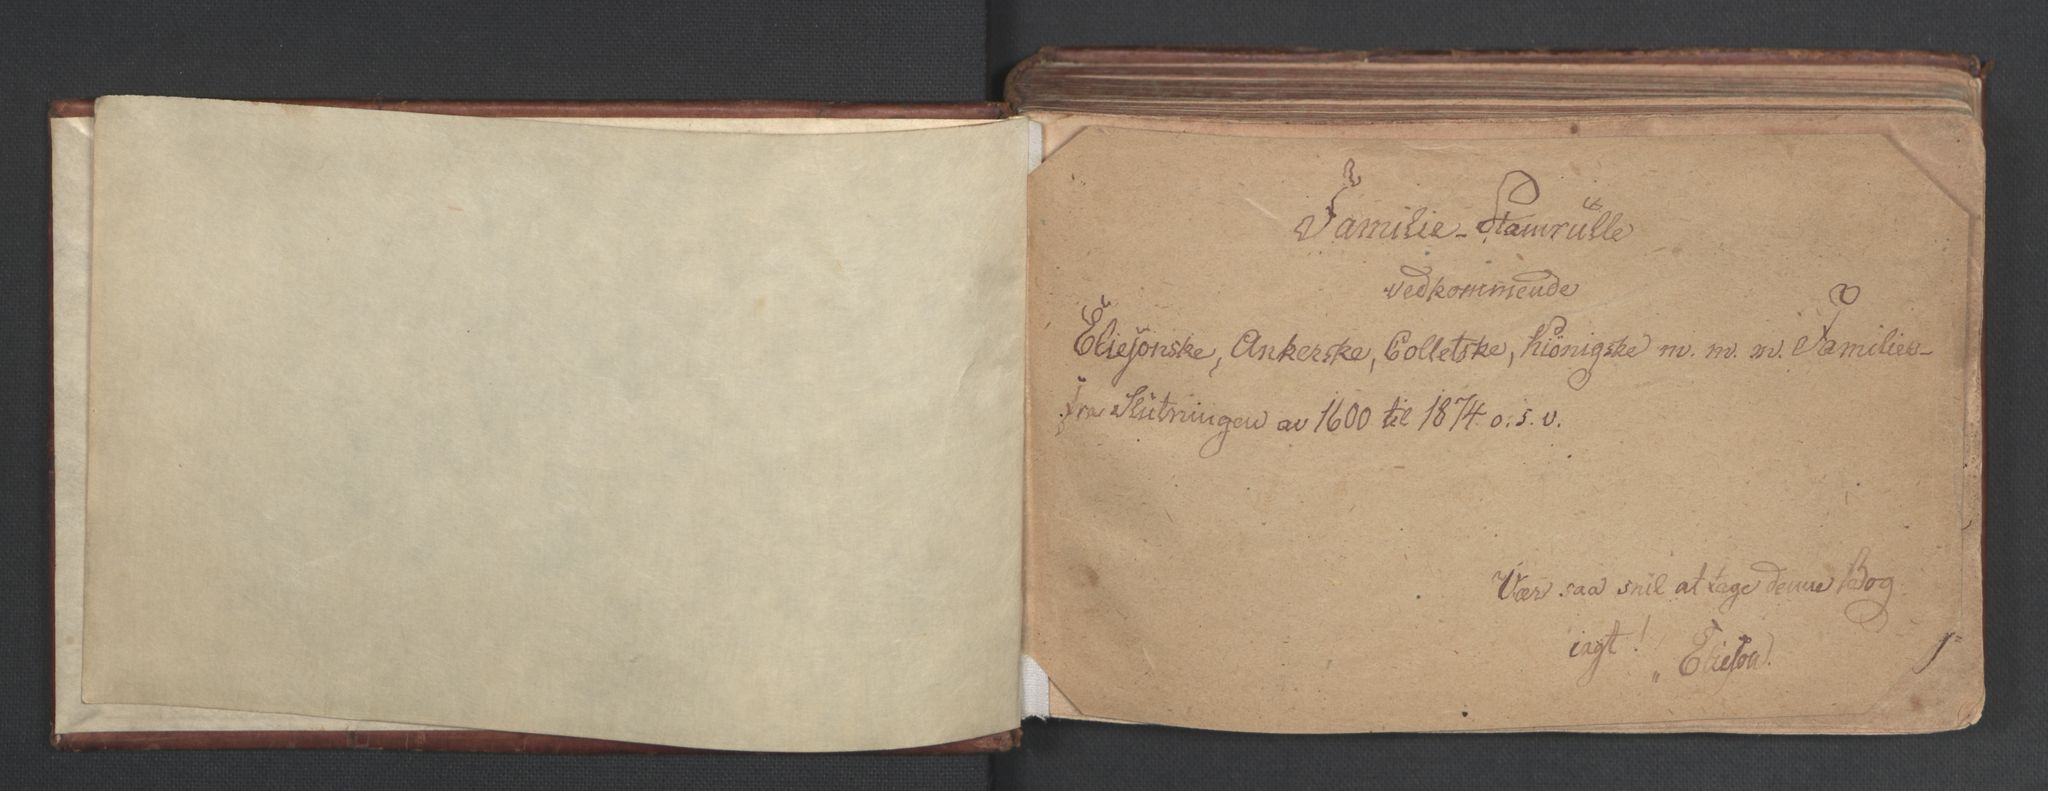 Familie-Stamrülle
vedkommende
Eliesonske, Ankerske, Colletske, Kiönigske m. m. m. Familier-
fra Slutningen av 1600 til 1874 o. s. v.
Vær saa snil at tage denne Bog
iagt! „ Elieson.